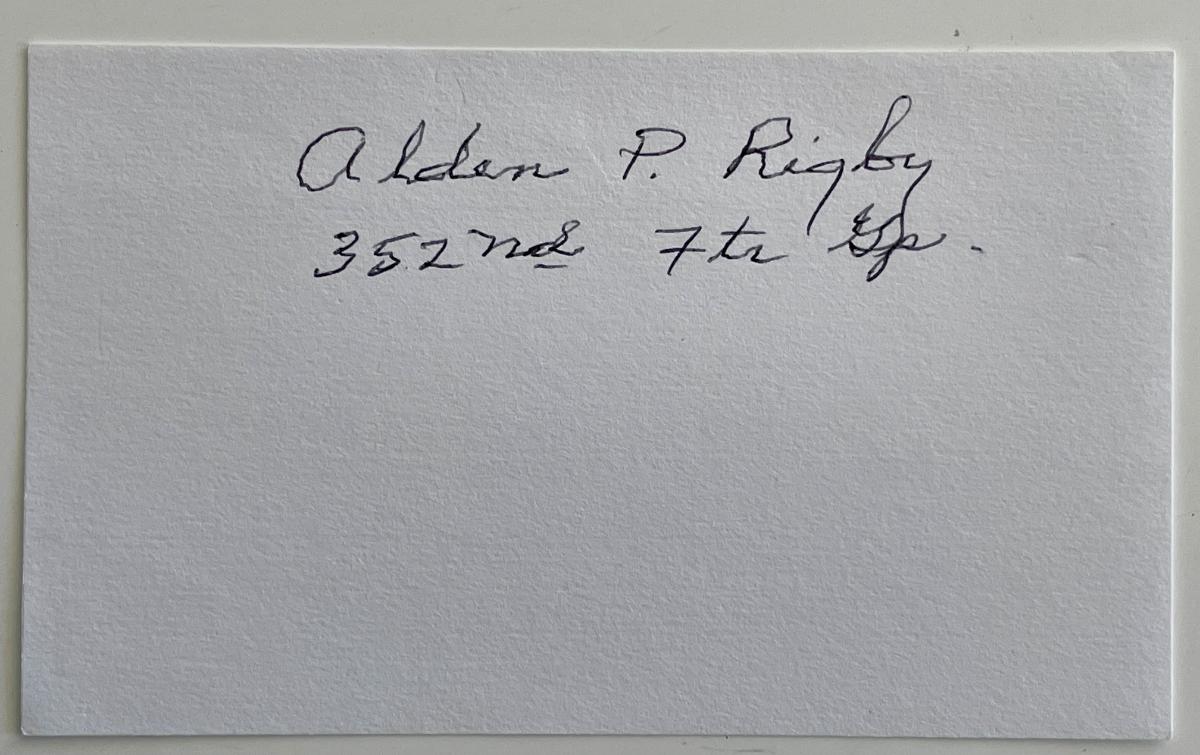 Alden P. Rigby
352nd Ftr Gp.